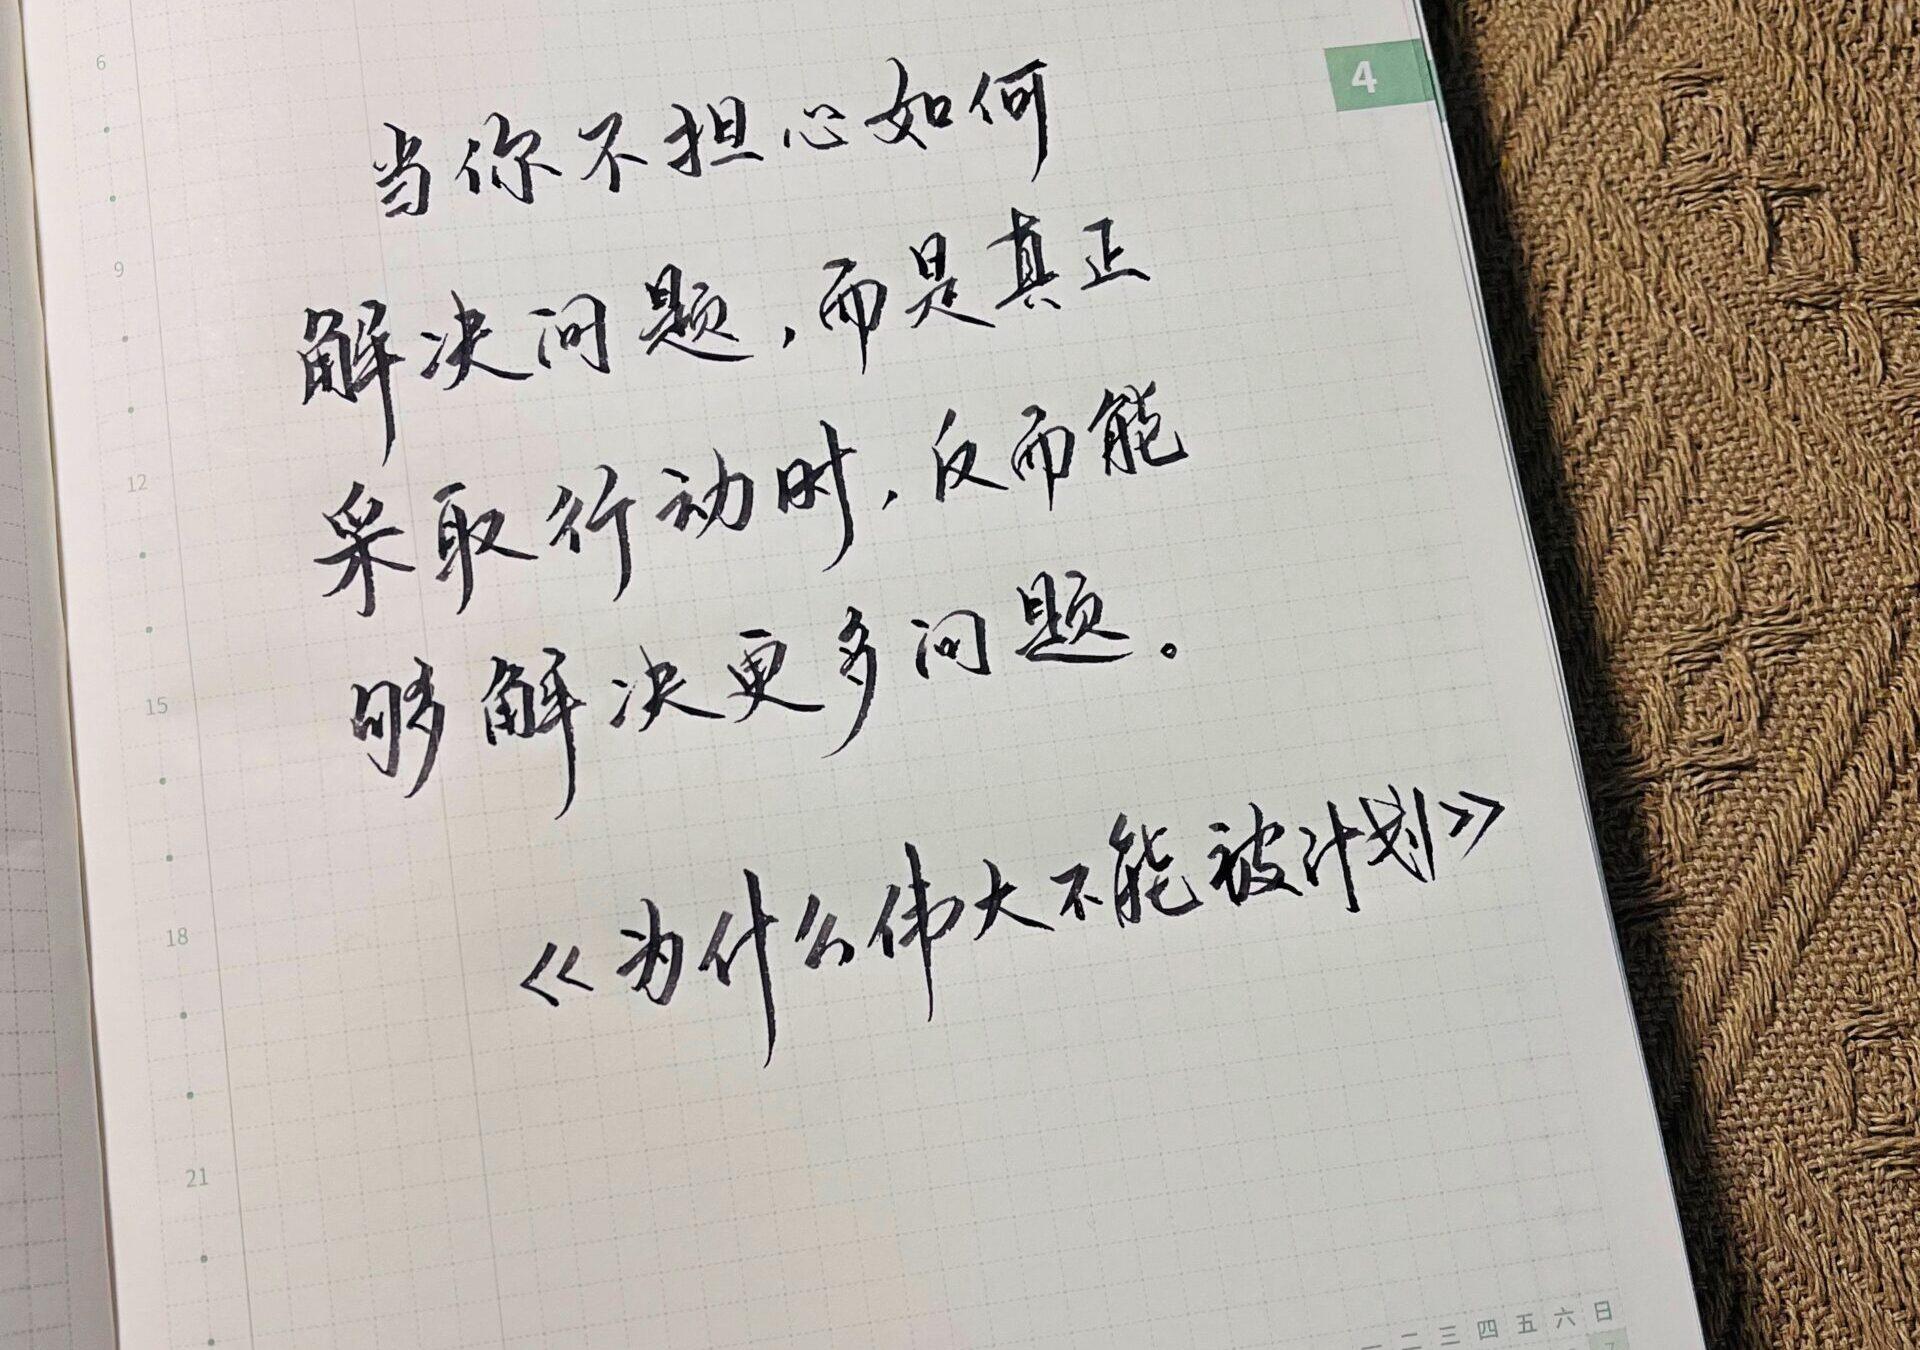 4
6
当你不担心如何
9
解决问题，而是真正
12
采取行动时，反而能
15
够解决更多问题。
18
《为什么伟大不能被计划》
21
一 二 三 四 五 六 日
7